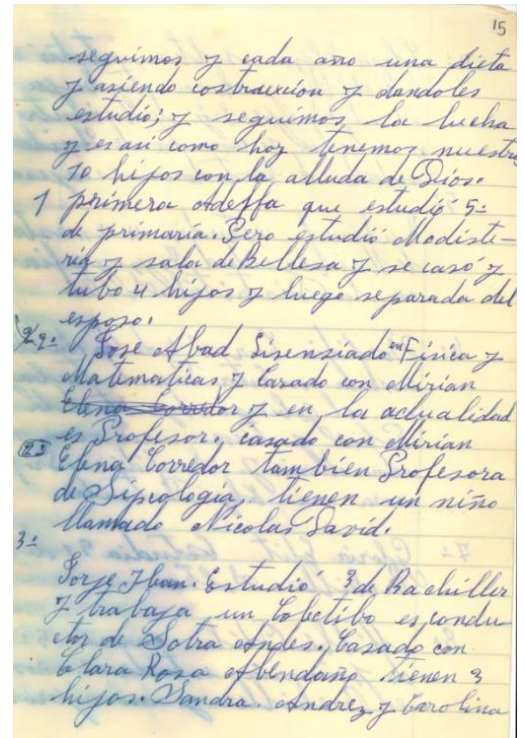 15
seguimos y cada año una dieta
y asiendo costrucción y dandoles
estudio; y seguimos la lucha
y es asi como hoy tenemos nuestros
10 hijos con la alluda de Dios.
1 primera Adelfa que estudió 5º
de primaria. Pero estudió Modiste-
ria y sala de Bellesa y se casó y
tubo 4 hijos y luego separada del
esposo.
2º Jose Abad Lisensiado en Física y
Matematicas y Casado con Mirian
Elena Corredor y en la actualidad
es Profesor. casado con Mirian
Elena Corredor también Profesora
de Sipcología, tienen un niño
llamado Nicolas David.
3º
Jorje Iban. Estudió 3 de Bachiller
y trabaja un Colectibo es condu-
ctor de Sotra Andes. Casado con
Clara Rosa Abendaño tienen 3
hijos. Sandra. Andrez y Carolina